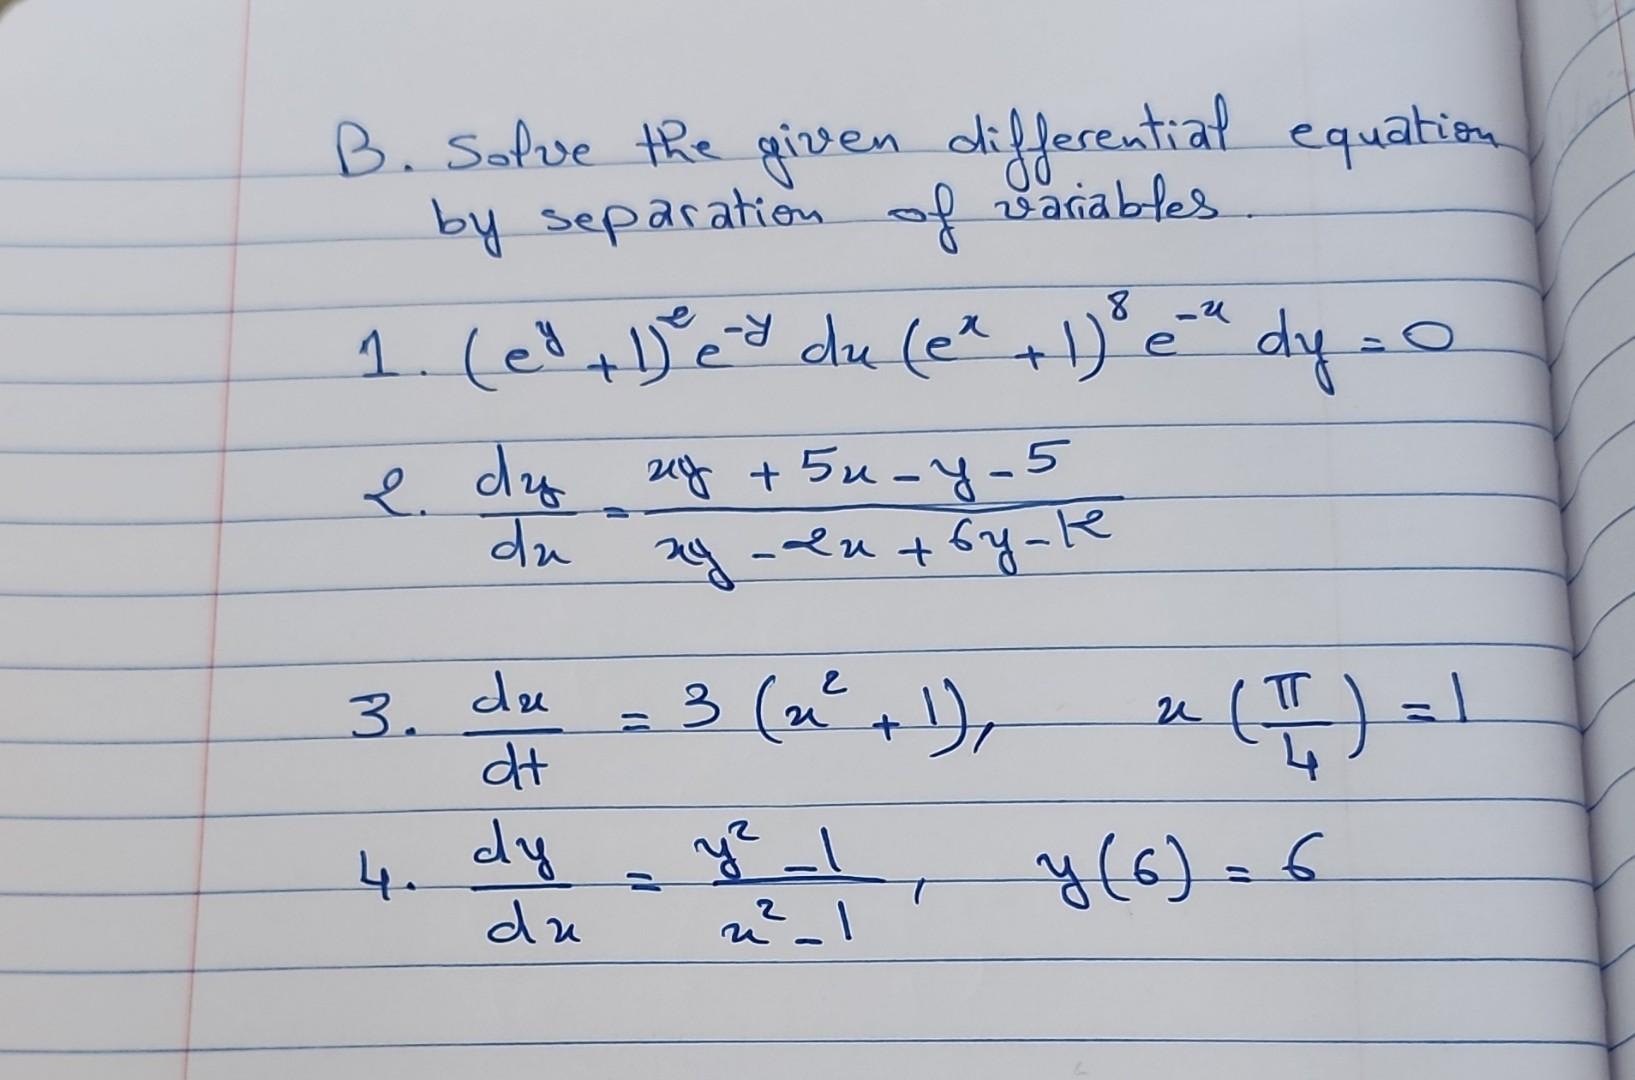 B. Solve the given differential equation
by separation of variables.
1. (e^y + 1)^2 e^-y dx (e^x + 1)^8 e^-x dy = 0
2. dy/dx = (xy + 5x - y - 5)/(xy - 2x + 6y - 12)
3. dx/dt = 3 (x^2 + 1), x (π/4) = 1
4. dy/dx = (y^2 - 1)/(x^2 - 1), y(6) = 6